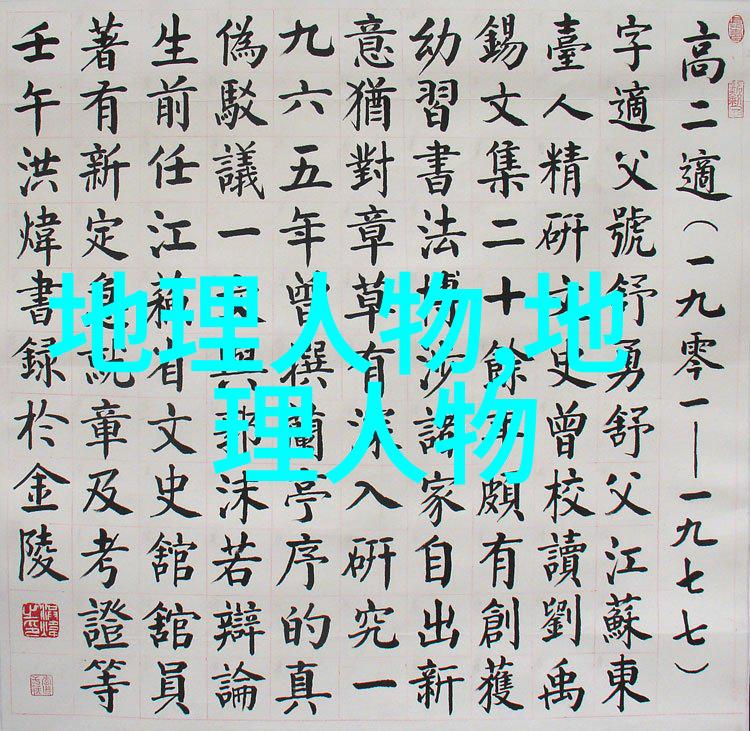 高二適（一九零一—一九七七）
字適父號舒勇舒父江蘇東
臺人精研文史曾校讀劉禹
錫文集二十餘年頗有創獲
幼習書法博涉諸家自出新
意猶對章草有深入研究一
九六五年曾撰蘭亭序的真
偽駁議一文與郭沫若辯論
生前任江蘇省文史舘舘員
著有新定急就章及考證等
壬午洪煒書録於金陵
地理人物,地
理人物